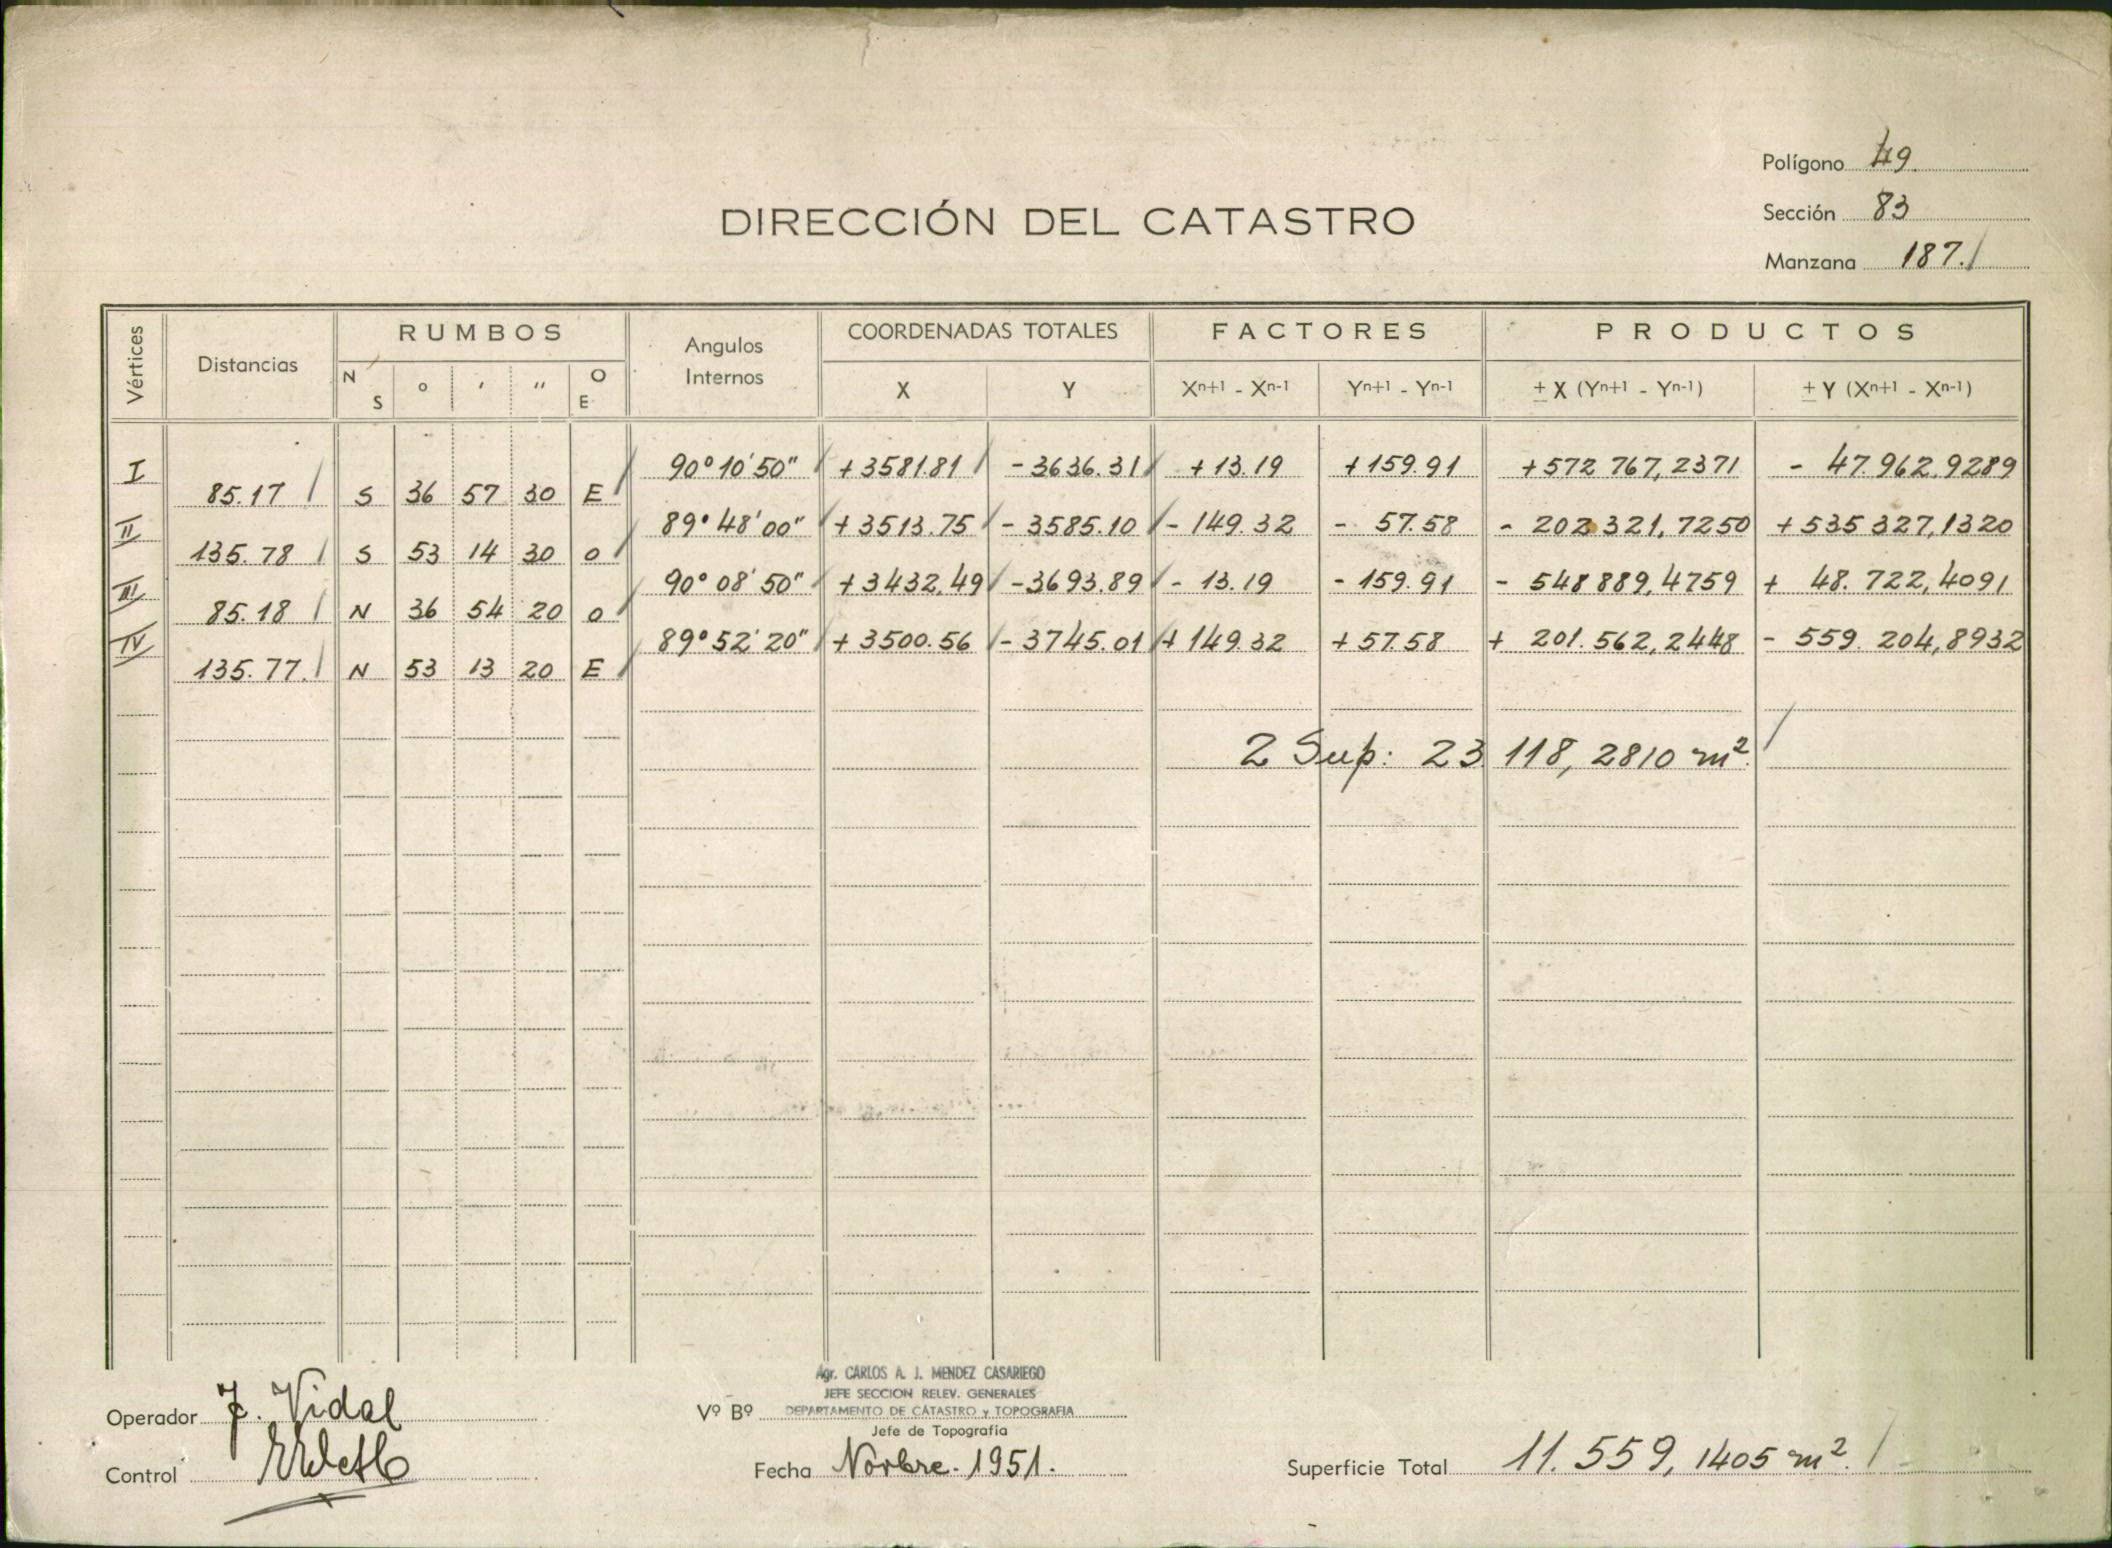 Polígono 49.
DIRECCIÓN DEL CATASTRO
Sección 83
Manzana 187.
Vértices Distancias RUMBOS Angulos Internos COORDENADAS TOTALES FACTORES PRODUCTOS
N S ° ' '' O E X Y Xn+1 - Xn-1 Yn+1 - Yn-1 ± X (Yn+1 - Yn-1) ± Y (Xn+1 - Xn-1)
I 90° 10' 50" +3581.81 -3636.31 +13.19 +159.91 +572 767,2371 - 47.962.9289
85.17 S 36 57 30 E
II 89° 48' 00" +3513.75 -3585.10 -149.32 - 57.58 - 202 321,7250 +535 327,1320
135.78 S 53 14 30 O
III 90° 08' 50" +3432,49 -3693.89 - 13.19 - 159.91 - 548 889,4759 + 48.722,4091
85.18 N 36 54 20 O
IV 89° 52' 20" +3500.56 -3745.01 +149.32 +57.58 + 201.562,2448 - 559.204,8932
135.77. N 53 13 20 E
2 Sup: 23 118,2810 m2.
Agr. CARLOS A. J. MENDEZ CASARIEGO
JEFE SECCION RELEV. GENERALES
DEPARTAMENTO DE CATASTRO y TOPOGRAFIA
Operador J. Vidal Vº Bº
Jefe de Topografía
Control Fecha Novbre. 1951. Superficie Total 11.559,1405 m2.